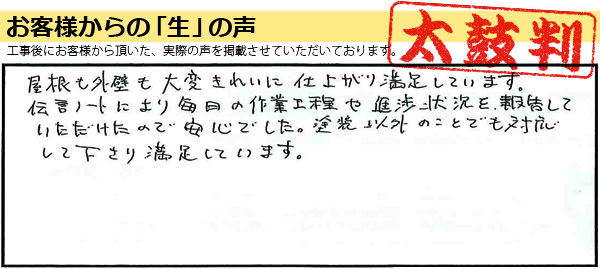 お客様からの「生」の声
工事後にお客様から頂いた、実際の声を掲載させていただいております。
太鼓判
屋根も外壁も大変きれいに仕上がり満足しています。
伝言ノートにより毎日の作業工程や進捗状況を報告して
いただけたので安心でした。塗装以外のことでも対応
して下さり満足しています。